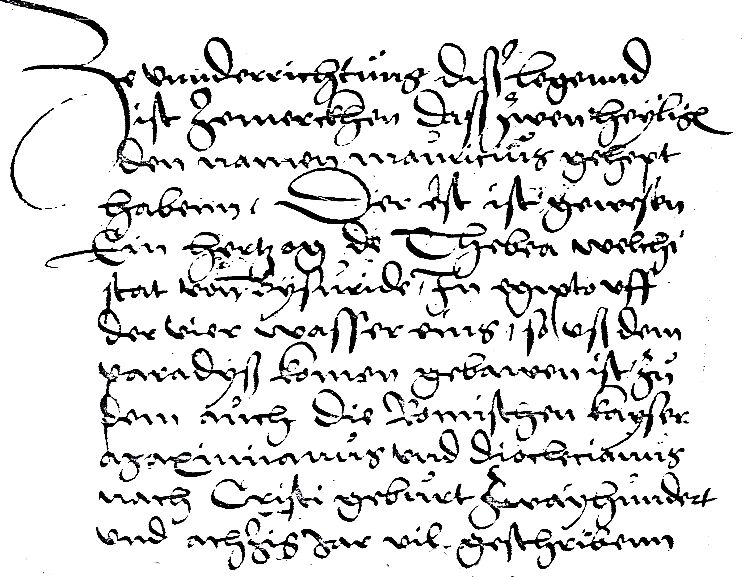 Ze vnnderrichtung disser legennd
ist Zemerckhen dass zwen heylig
den namen mauricius gehept
habenn, Der erst ist gewesen
Ein hertzog de Thebea welche
stat von Bysuride, In egipto vff
der vier wasser eins, so vss dem
paradyss komen gebawen ist, zu
dem auch die Romischen kayser
maximianus vnd dioclecianus
nach Cristi geburt Zwayhundert
vnd achtzig Jar vil geschribenn